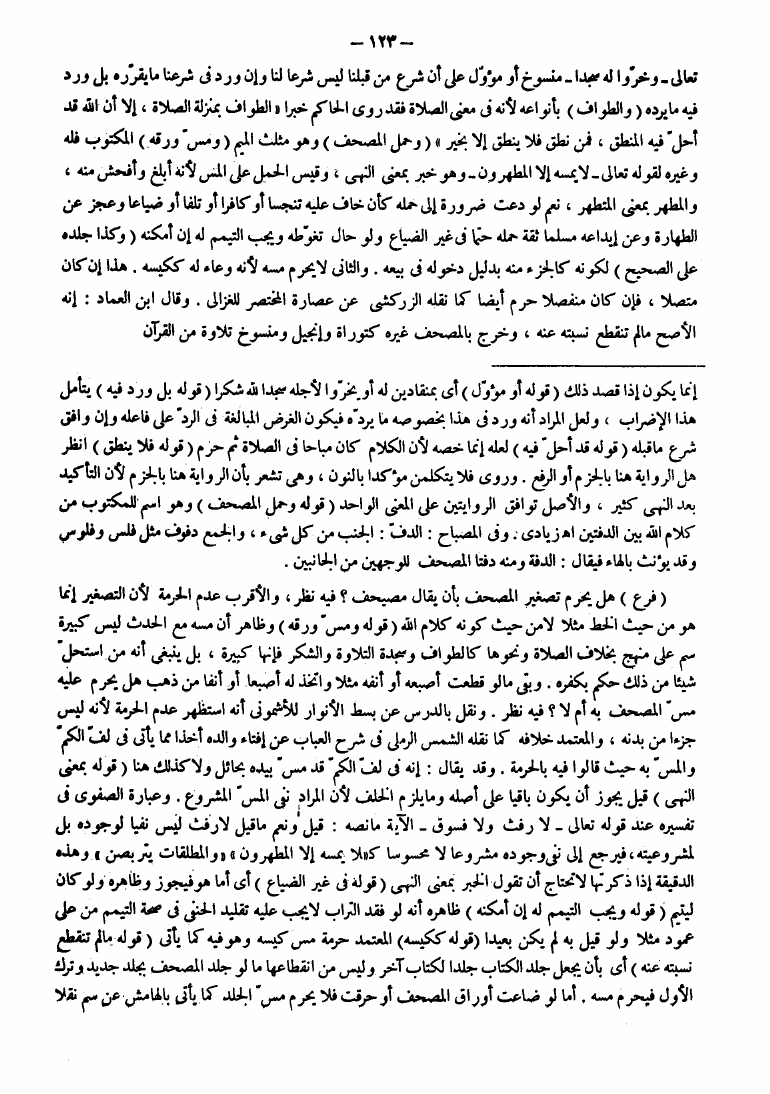 — ١٢٣ —
تعالى ـ وخرّوا له سجدا ـ منسوخ أو مؤوّل على أن شرع من قبلنا ليس شرعا لنا وإن ورد فى شرعنا مايقرّره بل ورد
فيه مايرده (والطواف) بأنواعه لأنه فى معنى الصلاة فقد روى الحاكم خبرا «الطواف بمنزلة الصلاة ، إلا أن الله قد
أحلّ فيه المنطق ، فمن نطق فلا ينطق إلا بخير» (وحمل المصحف) وهو مثلث الميم (ومسّ ورقه) المكتوب فله
وغيره لقوله تعالى ـ لايمسه إلا المطهرون ـ وهو خبر بمعنى النهى ، وقيس الحمل على المس لأنه أبلغ وأفحش منه ،
والمطهر بمعنى المتطهر ، نعم لو دعت ضرورة إلى حمله كأن خاف عليه تنجسا أو كافرا أو تلفا أو ضياعا وعجز عن
الطهارة وعن إيداعه مسلما ثقة حمله حتما فى غير الضياع ولو حال تغوّطه ويجب التيمم له إن أمكنه (وكذا جلده
على الصحيح) لكونه كالجزء منه بدليل دخوله فى بيعه . والثانى لايحرم مسه لأنه وعاء له ككيسه . هذا إن كان
متصلا ، فإن كان منفصلا حرم أيضا كما نقله الزركشى عن عصارة المختصر للغزالى . وقال ابن العماد : إنه
الأصح مالم تنقطع نسبته عنه ، وخرج بالمصحف غيره كتوراة وإنجيل ومنسوخ تلاوة من القرآن
إنما يكون إذا قصد ذلك (قوله أو مؤوّل) أى بمنقادين له أو بخرّوا لأجله سجدا لله شكرا (قوله بل ورد فيه) يتأمل
هذا الإضراب ، ولعل المراد أنه ورد فى هذا بخصوصه ما يردّه فيكون الغرض المبالغة فى الردّ على فاعله وإن وافق
شرع ماقبله (قوله قد أحلّ فيه) لعله إنما خصه لأن الكلام كان مباحا فى الصلاة ثم حرم (قوله فلا ينطق) انظر
هل الرواية هنا بالجزم أو الرفع . وروى فلا يتكلمن مؤكدا بالنون ، وهى تشعر بأن الرواية هنا بالجزم لأن التأكيد
بعد النهى كثير ، والأصل توافق الروايتين على المعنى الواحد (قوله وحمل المصحف) وهو اسم للمكتوب من
كلام الله بين الدفتين اهـ زيادى . وفى المصباح : الدفّ : الجنب من كل شىء ، والجمع دفوف مثل فلس وفلوس
وقد يؤنث بالهاء فيقال : الدفة ومنه دفتا المصحف للوجهين من الجانبين .
(فرع) هل يحرم تصغير المصحف بأن يقال مصيحف ؟ فيه نظر ، والأقرب عدم الحرمة لأن التصغير إنما
هو من حيث الخط مثلا لامن حيث كونه كلام الله (قوله ومسّ ورقه) وظاهر أن مسه مع الحدث ليس كبيرة
سم على منهج بخلاف الصلاة ونحوها كالطواف وسجدة التلاوة والشكر فإنها كبيرة ، بل ينبغى أنه من استحلّ
شيئا من ذلك حكم بكفره . وبقى مالو قطعت أصبعه أو أنفه مثلا واتخذ له أصبعا أو أنفا من ذهب هل يحرم عليه
مسّ المصحف به أم لا ؟ فيه نظر . ونقل بالدرس عن بسط الأنوار للأشمونى أنه استظهر عدم الحرمة لأنه ليس
جزءا من بدنه ، والمعتمد خلافه كما نقله الشمس الرملى فى شرح العباب عن إفتاء والده أخذا مما يأتى فى لفّ الكمّ
والمسّ به حيث قالوا فيه بالحرمة . وقد يقال : إنه فى لفّ الكمّ قد مسّ بيده بحائل ولا كذلك هنا (قوله بمعنى
النهى) قيل يجوز أن يكون باقيا على أصله ومايلزم الخلف لأن المراد نفى المسّ المشروع . وعبارة الصفوى فى
تفسيره عند قوله تعالى ـ لا رفث ولا فسوق ـ الآية مانصه : قيل ونعم ماقيل لارفث ليس نفيا لوجوده بل
لمشروعيته ، فيرجع إلى نفى وجوده مشروعا لا محسوسا كـ«لا يمسه إلا المطهرون» «والمطلقات يتربصن» وهذه
الدقيقة إذا ذكرتها لاتحتاج أن تقول الخبر بمعنى النهى (قوله فى غير الضياع) أى أما هو فيجوز وظاهره ولو كان
ليتيم (قوله ويجب التيمم له إن أمكنه) ظاهره أنه لو فقد التراب لايجب عليه تقليد الحنفى فى صحة التيمم من على
عمود مثلا ولو قيل به لم يكن بعيدا (قوله ككيسه) المعتمد حرمة مس كيسه وهو فيه كما يأتى (قوله مالم تنقطع
نسبته عنه) أى بأن يجعل جلد الكتاب جلدا لكتاب آخر وليس من انقطاعها ما لو جلد المصحف بجلد جديد وترك
الأول فيحرم مسه . أما لو ضاعت أوراق المصحف أو حرقت فلا يحرم مسّ الجلد كما يأتى بالهامش عن سم نقلا